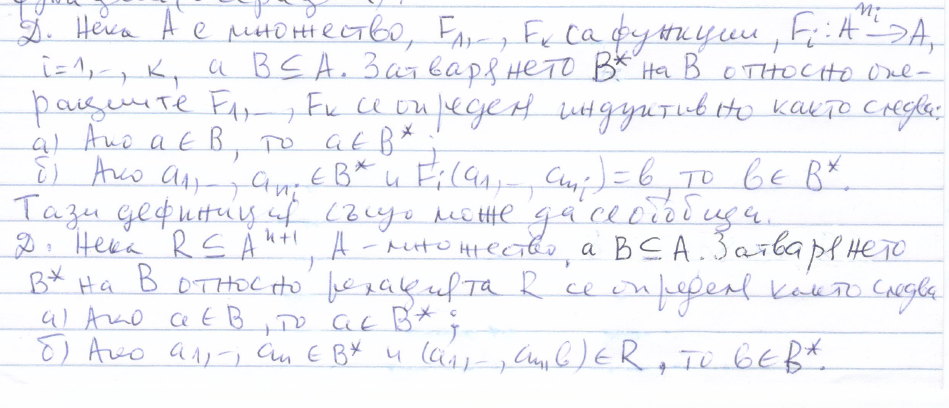 Д. Нека A е множество, F₁,–, Fₖ са функции, Fᵢ: A^{nᵢ} → A,
i=1,–, k, а B ⊆ A. Затварянето B* на B относно опе-
рациите F₁,–, Fₖ се определя индуктивно както следва:
а) Ако a ∈ B, то a ∈ B*;
б) Ако a₁,–, a_{nᵢ} ∈ B* и Fᵢ(a₁,–, a_{nᵢ}) = b, то b ∈ B*.
Тази дефиниция също може да се обобщи.
Д. Нека R ⊆ A^{n+1}, A – множество, а B ⊆ A. Затварянето
B* на B относно релацията R се определя както следва
а) Ако a ∈ B, то a ∈ B*;
б) Ако a₁,–, aₙ ∈ B* и (a₁,–, aₙ, b) ∈ R, то b ∈ B*.